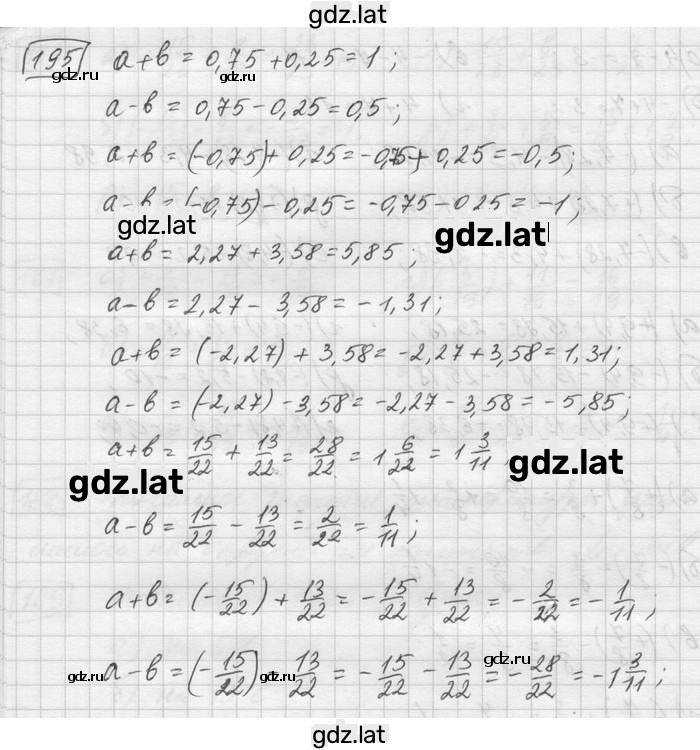 gdz.lat
195 a+b = 0,75+0,25=1;
gdz.ru gdz.ru
a-b = 0,75-0,25=0,5;
a+b = (-0,75)+0,25=-0,75+0,25=-0,5;
a-b=(-0,75)-0,25=-0,75-0,25=-1;
gdz.lat gdz.lat
a+b=2,27+3,58=5,85;
a-b=2,27-3,58=-1,31;
a+b=(-2,27)+3,58=-2,27+3,58=1,31;
a-b=(-2,27)-3,58=-2,27-3,58=-5,85;
a+b=15/22+13/22=28/22=1 6/22=1 3/11
gdz.lat gdz.lat
a-b=15/22-13/22=2/22=1/11;
a+b=(-15/22)+13/22=-15/22+13/22=-2/22=-1/11;
gdz.ru gdz.ru gdz.ru
a-b=(-15/22)-13/22=-15/22-13/22=-28/22=-1 3/11;
gdz.lat